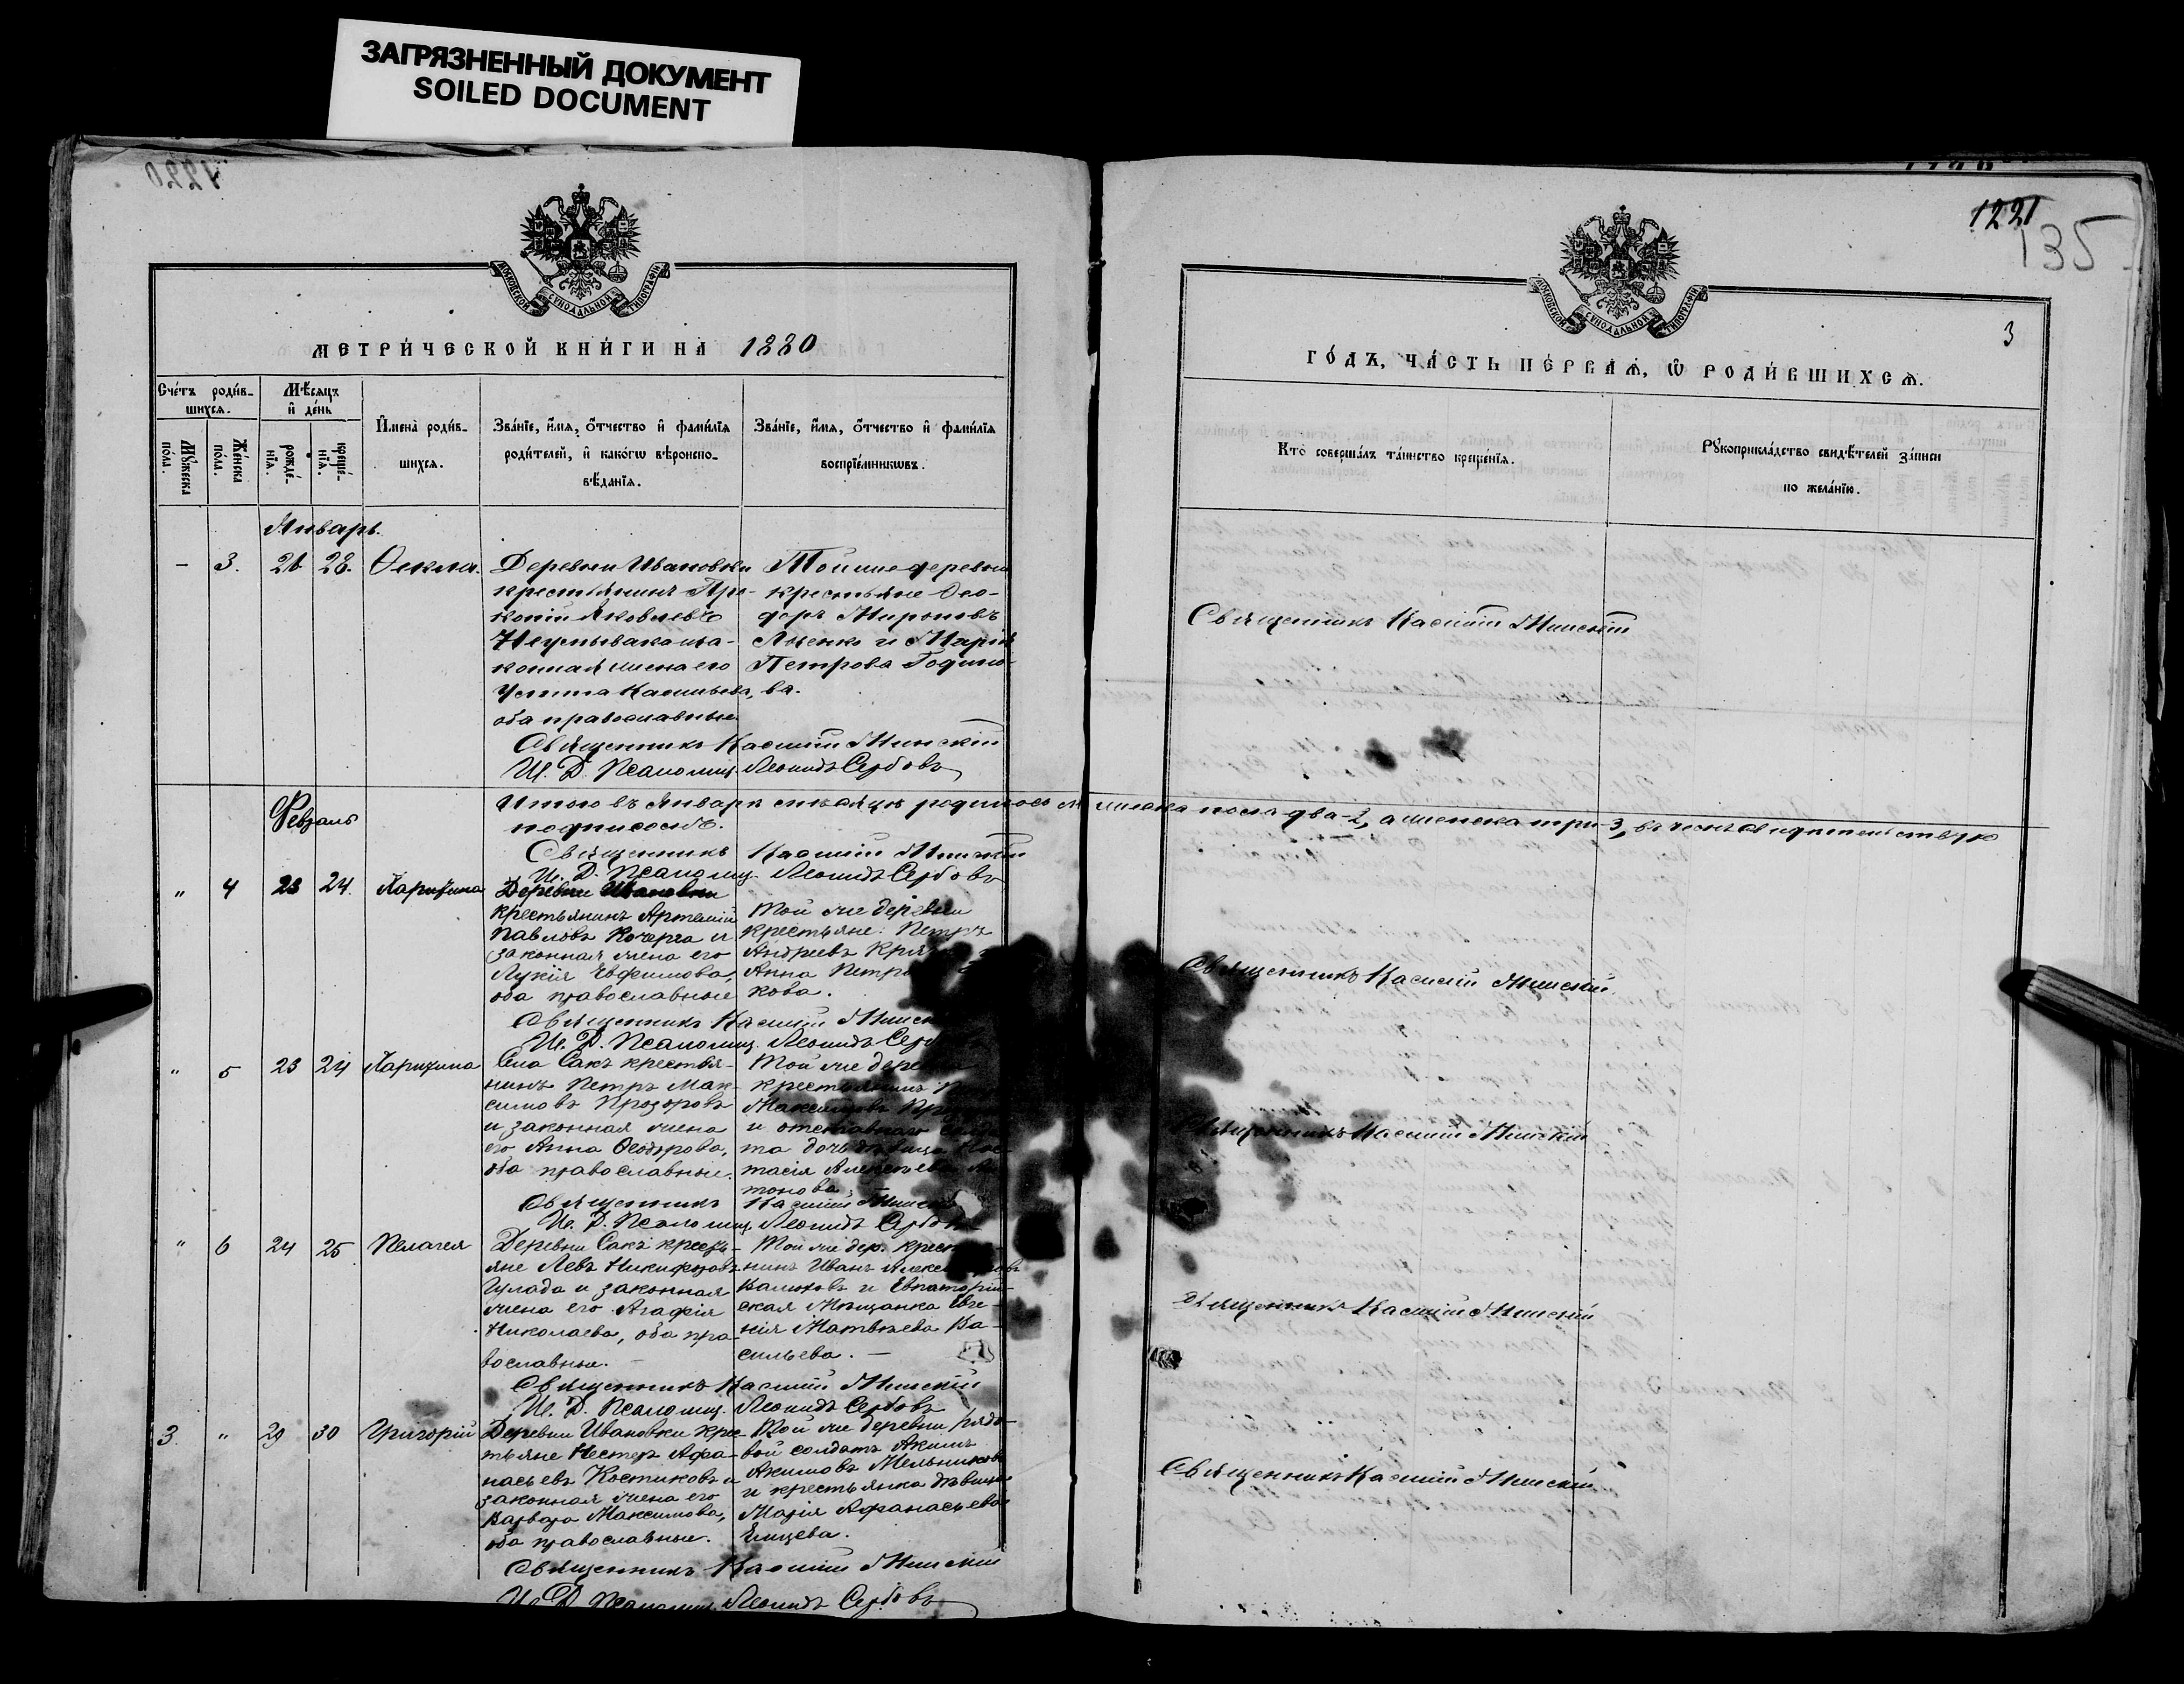 ЗАГРЯЗНЕННЫЙ ДОКУМЕНТ
SOILED DOCUMENT
1220
МОСКОВСКОЙ СѴНОДАЛЬНОЙ ТИПОГРАФІИ
МЕТРИ́ЧЕСКОЙ КНИ́ГИ НА 1880
Сче́тъ роди́в-
шихся.
Мѣ́сяцъ
и҆ де́нь
Мꙋ́жеска
по́ла.
Же́нска
по́ла.
рожде́-
нїѧ.
креще́-
нїѧ.
И҆мена̀ роди́в-
шихся.
Зва́нїе, и҆́мѧ, ѻ҆́тчество и҆ фами́лїѧ
роди́телей, и҆ како́гѡ вѣроиспо-
вѣ́данїѧ.
Зва́нїе, и҆́мѧ, ѻ҆́тчество и҆ фами́лїѧ
воспрїе́мникѡвъ.
Январь.
- 3. 28. Ѳекла.
Деревни Ивановки
крестьянинъ Про-
копій Яковлевъ
и за-
конная жена его
Устина Касьянова,
оба православные
Тойже деревни
крестьяне Ѳео-
доръ Мироновъ
Яценко и Марія
Петрова Годино-
ва.
Священникъ Касьянъ Минскій
И. Д. Псаломщ. Леонидъ Сербовъ
Итого въ Январѣ мѣсяцѣ родилось мужеска пола два-2, а женска три-3, въ чемъ свидѣтельствую
подписомъ.
Священникъ Касьянъ Минскій
И. Д. Псаломщ. Леонидъ Сербовъ
Февраль
" 4 23 24. Харитина
Деревни Ивановки
крестьянинъ Артемій
Павловъ Кочерга и
законная жена его
Лукія Евфимова,
оба православные
Той же деревни
крестьяне: Петръ
Андреевъ
Анна
кова.
Священникъ Касьянъ
И. Д. Псаломщ. Леонидъ
" 5 23 24 Харитина
Села Сакъ крестья-
нинъ Петръ Мак-
симовъ Прозоровъ
и законная жена
его Анна Ѳеодорова,
оба православные.
Той же деревни
крестьянинъ
Максимовъ
и отставнаго
та дочь дѣвица
тасія Алексѣева
тонова
Священникъ Касьянъ
И. Д. Псаломщ. Леонидъ
" 6 24 25 Пелагея
Деревни Сакъ кресть-
яне Левъ Никифоровъ
Гулада и законная
жена его Агафія
Николаева, оба пра-
вославные.
Той же дер.
нинъ Иванъ
и Евпаторій-
ская Мѣщанка Евге-
нія Матвѣева Ва-
сильева.
Священникъ Касьянъ Минскій
И. Д. Псаломщ. Леонидъ Сербовъ
3. " 29 30 Григорій
Деревни Ивановки крес-
тьяне Нестеръ Афа-
насьевъ Костиковъ и
законная жена его
Варвара Максимова,
оба православные.
Той же деревни рядо-
вой солдатъ Акимъ
Акимовъ Мельниковъ
и крестьянка дѣвица
Марія Афанасьева
Священникъ Касьянъ Минскій
И. Д. Псаломщ. Леонидъ Сербовъ
1221
135
МОСКОВСКОЙ СѴНОДАЛЬНОЙ ТИПОГРАФІИ
3
ГО́ДЪ, ЧА́СТЬ ПЕ́РВАѦ, Ѡ҆ РОДИ́ВШИХСѦ.
Кто̀ соверша́лъ та́инство креще́нїѧ.
Рꙋкоприкла́дство свидѣ́телей за́писи
по жела́нїю.
Священникъ Касьянъ Минскій
Священникъ Касьянъ Минскій
Священникъ Касьянъ Минскій
Священникъ Касьянъ Минскій
Священникъ Касьянъ Минскій